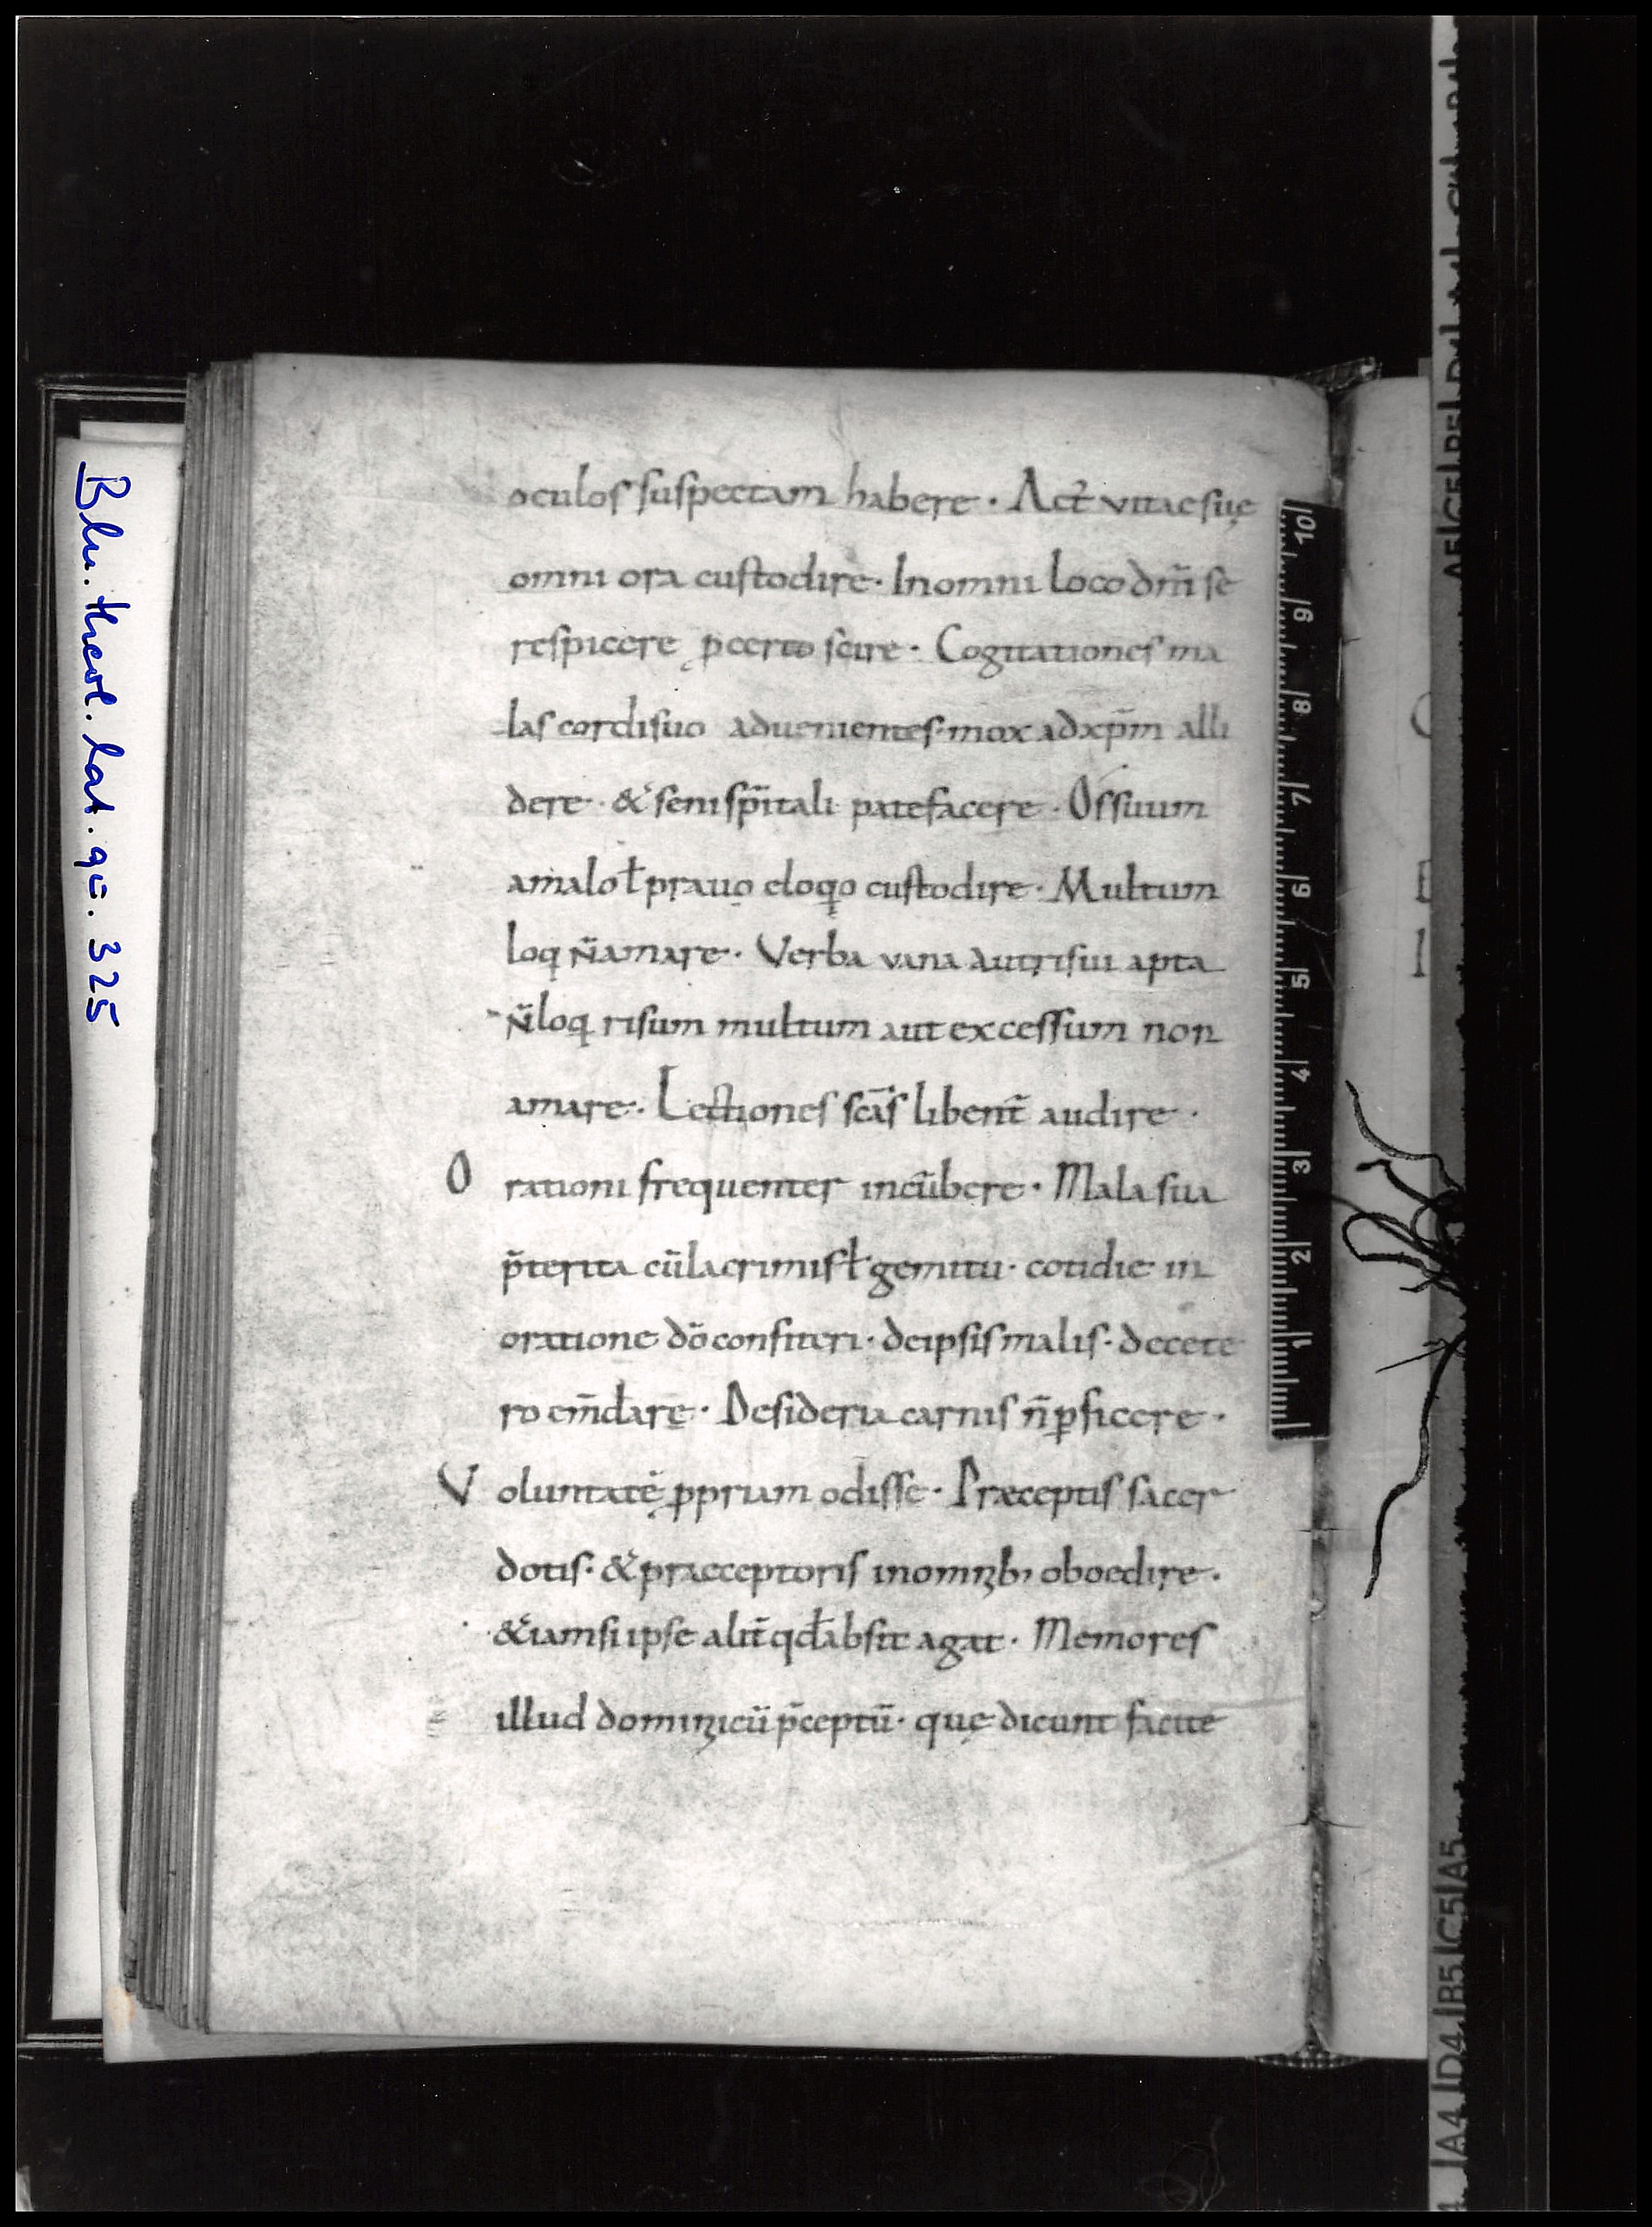 oculos suspectam habere · Act̄ vitae suę
omni ora custodire · In omni loco dm̄ se
respicere ꝓ certo scire · Cogitationes ma
las cordi suo aduenientes · mox ad xp̄m alli
dere · & seni sp̄itali patefacere · Os suum
a malo ł prauo eloqo custodire · Multum
loq n̄ amare · Verba vana aut risui apta
n̄ loq risum multum aut excessum non
amare · Lectiones sc̄as libent̄ audire ·
O rationi frequenter incūbere · Mala sua
p̄terita cū lacrimis ł gemitu · cotidie in
oratione dō confiteri · de ipsis malis · de cete
ro em̄dare · Desideria carnis n̄ ꝑficere ·
V oluntatē ꝓprium odisse · Præceptis sacer
dotis · & praeceptoris in omnib; oboedire ·
&iam si ipse alit̄ qđ absit agat · Memores
illud dominicū p̄ceptū · quę dicunt facite
Bln. theol. lat. qu. 325
10 9 8 7 6 5 4 3 2 1
A4 D4 B5 C5 A5